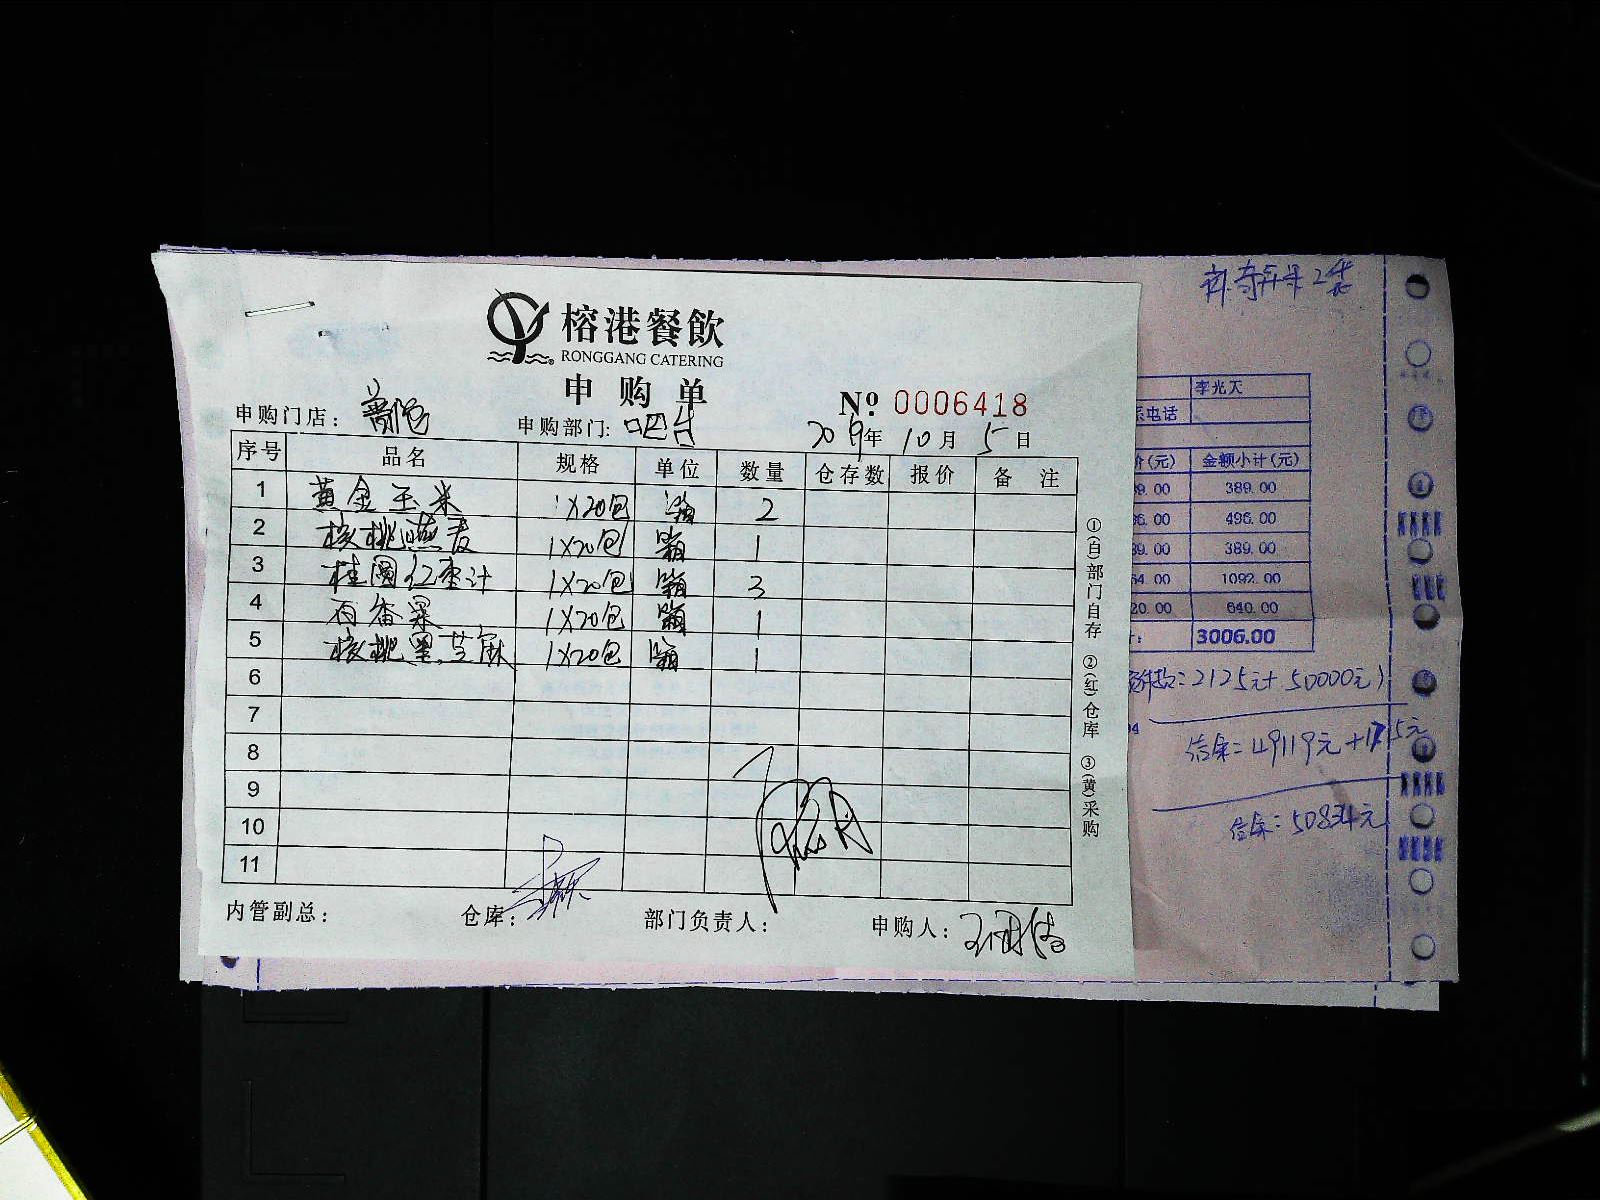 榕港餐飲
RONGGANG CATERING
申购单
№ 0006418
申购门店：
申购部门：吧台
2019年10月5日
序号 品名 规格 单位 数量 仓存数 报价 备注
1 黄金玉米 1X20包 箱 2
2 核桃燕麦 1X20包 箱 1
3 桂圆红枣汁 1X20包 箱 3
4 百香果 1X20包 箱 1
5 核桃黑芝麻 1X20包 箱 1
6
7
8
9
10
11
内管副总： 仓库： 部门负责人： 申购人：
①(白)部门自存 ②(红)仓库 ③(黄)采购
2袋
李光天
电话
价(元) 金额小计(元)
9.00 389.00
6.00 496.00
89.00 389.00
64.00 1092.00
20.00 640.00
3006.00
2125元+50000元)
94
信余=49119元+1715元
信余=50834元